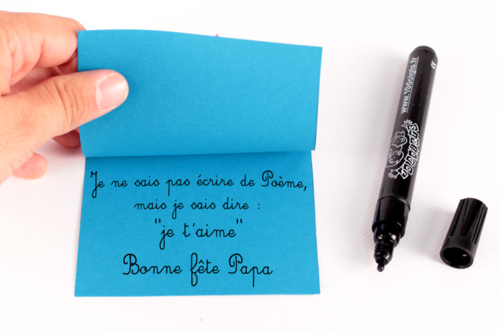 Je ne sais pas écrire de Poème,
mais je sais dire :
"je t'aime"
Bonne fête Papa
www.10doigts.fr